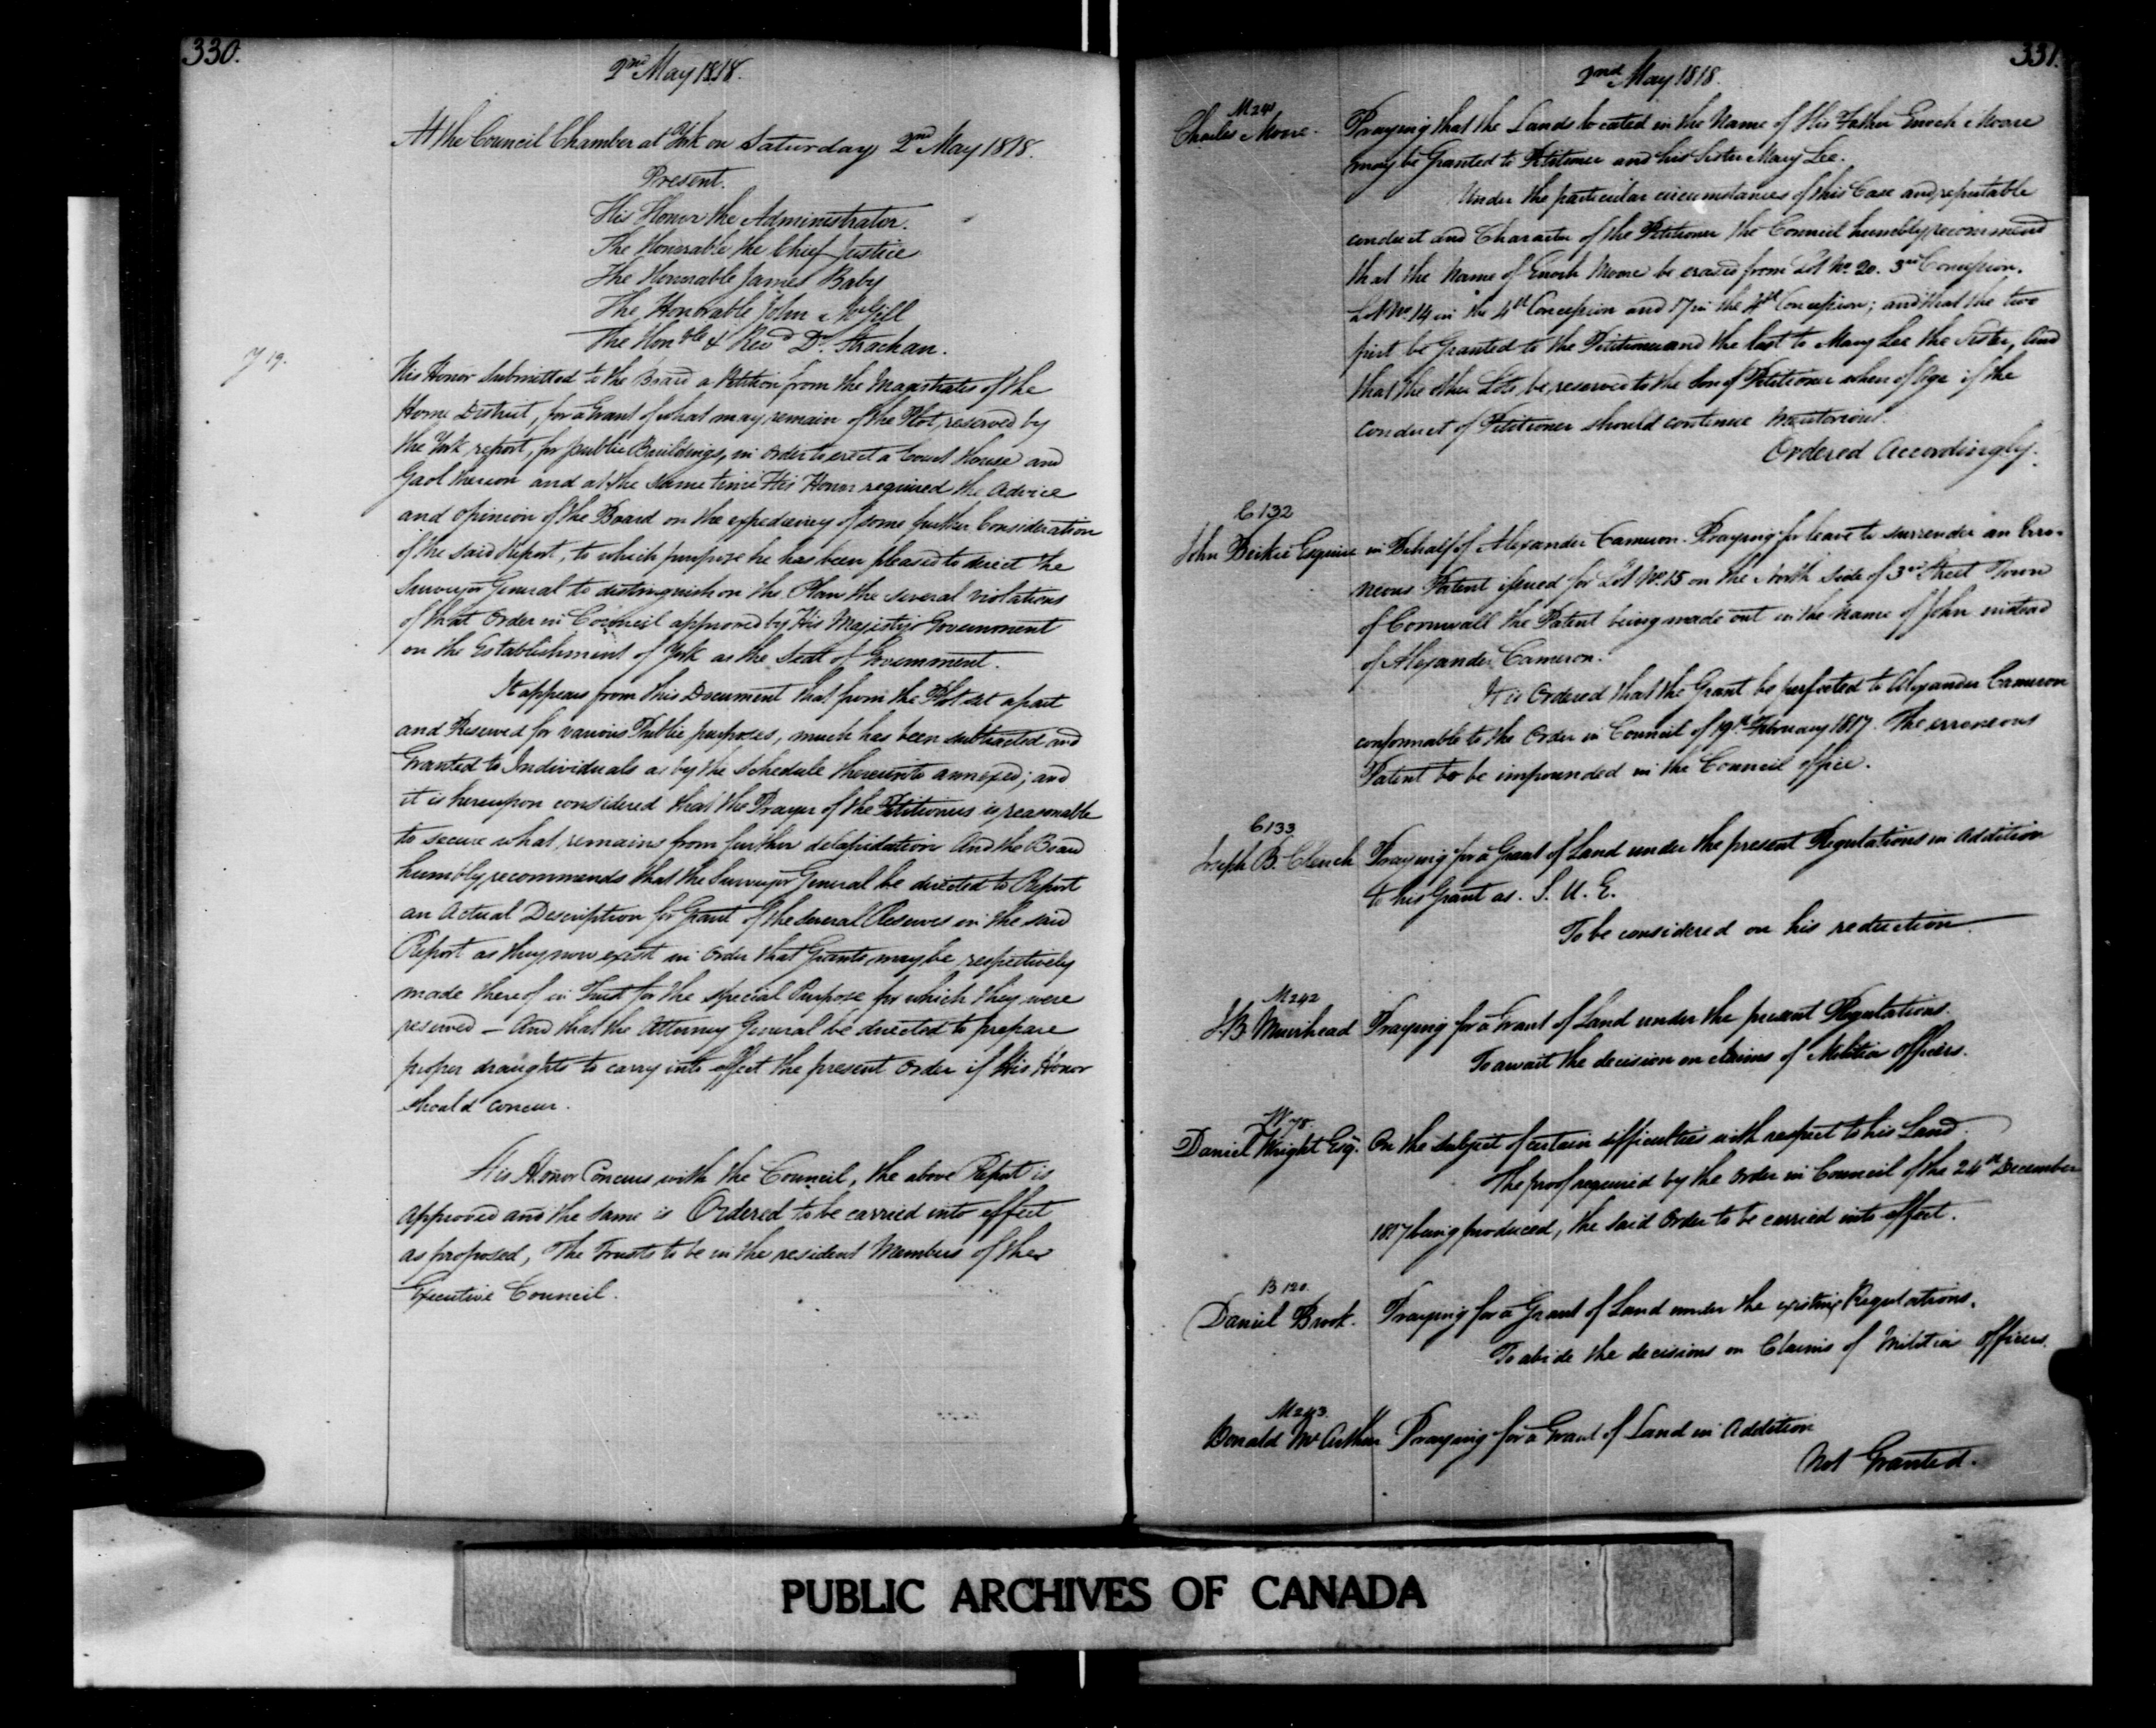 330.
2nd May 1818.
At the Council Chamber at York on Saturday 2nd May 1818.
Present.
His Honor the Administrator.
The Honorable the Chief Justice
The Honorable James Baby
The Honorable John McGill
The Honble & Revd Dr. Strachan.
Y 19.
His Honor submitted to the Board a Petition from the Magistrates of the
Home District, for a Grant of what may remain of the Plot reserved by
the York report, for public Buildings, in order to erect a Court House and
Gaol thereon and at the same time His Honor required the Advice
and opinion of the Board on the expediency of some further Consideration
of the said Report, to which purpose he has been pleased to direct the
Surveyor General to distinguish on the Plan the several violations
of that Order in Council approved by His Majestys Government
on the Establishment of York as the Seat of Government.
It appears from this Document that from the Plot set apart
and Reserved for various Public purposes, much has been subtracted and
Granted to Individuals as by the Schedule thereunto annexed; and
it is hereupon considered that the Prayer of the Petitioners is reasonable
to secure what remains from further delapidation And the Board
humbly recommends that the Surveyor General be directed to Report
an Actual Description for Grant of the several Reserves in the said
Report as they now exist in order that Grants may be respectively
made thereof in Trust for the special Purpose for which they were
reserved - And that the Attorney General be directed to prepare
proper draughts to carry into effect the present Order if His Honor
should concur.
His Honor Concurs with the Council, the above Report is
approved and the same is Ordered to be carried into effect
as proposed, The Trusts to be in the resident Members of the
Executive Council.
331.
2nd May 1818.
M 241
Charles Moore. Praying that the Lands located in the Name of His Father Enoch Moore
may be Granted to Petitioner and his Sister Mary Lee.
Under the particular circumstances of this Case and reputable
conduct and Character of the Petitioner the Council humbly recommend
that the Name of Enoch Moore be erased from Lot No. 20. 3rd Concession.
Lot No. 14 in the 4th Concession and 17 in the 4th Concession; and that the two
first be Granted to the Petitioner and the last to Mary Lee the Sister, And
that the other Lots be reserved to the Son of Petitioner when of Age if the
conduct of Petitioner should continue Meritorious.
Ordered Accordingly.
C 132
John Beikie Esquire in Behalf of Alexander Cameron. Praying for leave to surrender an Erro-
neous Patent issued for Lot No. 15 on the North side of 3rd Street Town
of Cornwall the Patent being made out in the Name of John instead
of Alexander Cameron.
It is Ordered that the Grant be perfected to Alexander Cameron
conformable to the Order in Council of 19th February 1817. The erroneous
Patent to be impounded in the Council Office.
C 133
Joseph B. Clench Praying for a Grant of Land under the present Regulations in Addition
to his Grant as. S. U. E.
To be considered on his reduction.
M 242
J B Muirhead Praying for a Grant of Land under the present Regulations.
To await the decision on claims of Militia Officers.
W 78.
Daniel Wright Esqr. On the subject of certain difficulties with respect to his Land.
The proof required by the Order in Council of the 24th December
1817 being produced, the said Order to be carried into effect.
B 120.
Daniel Brook. Praying for a Grant of Land under the existing Regulations.
To abide the decisions on Claims of Militia Officers.
M 243.
Donald McArthur Praying for a Grant of Land in Addition
Not Granted.
PUBLIC ARCHIVES OF CANADA